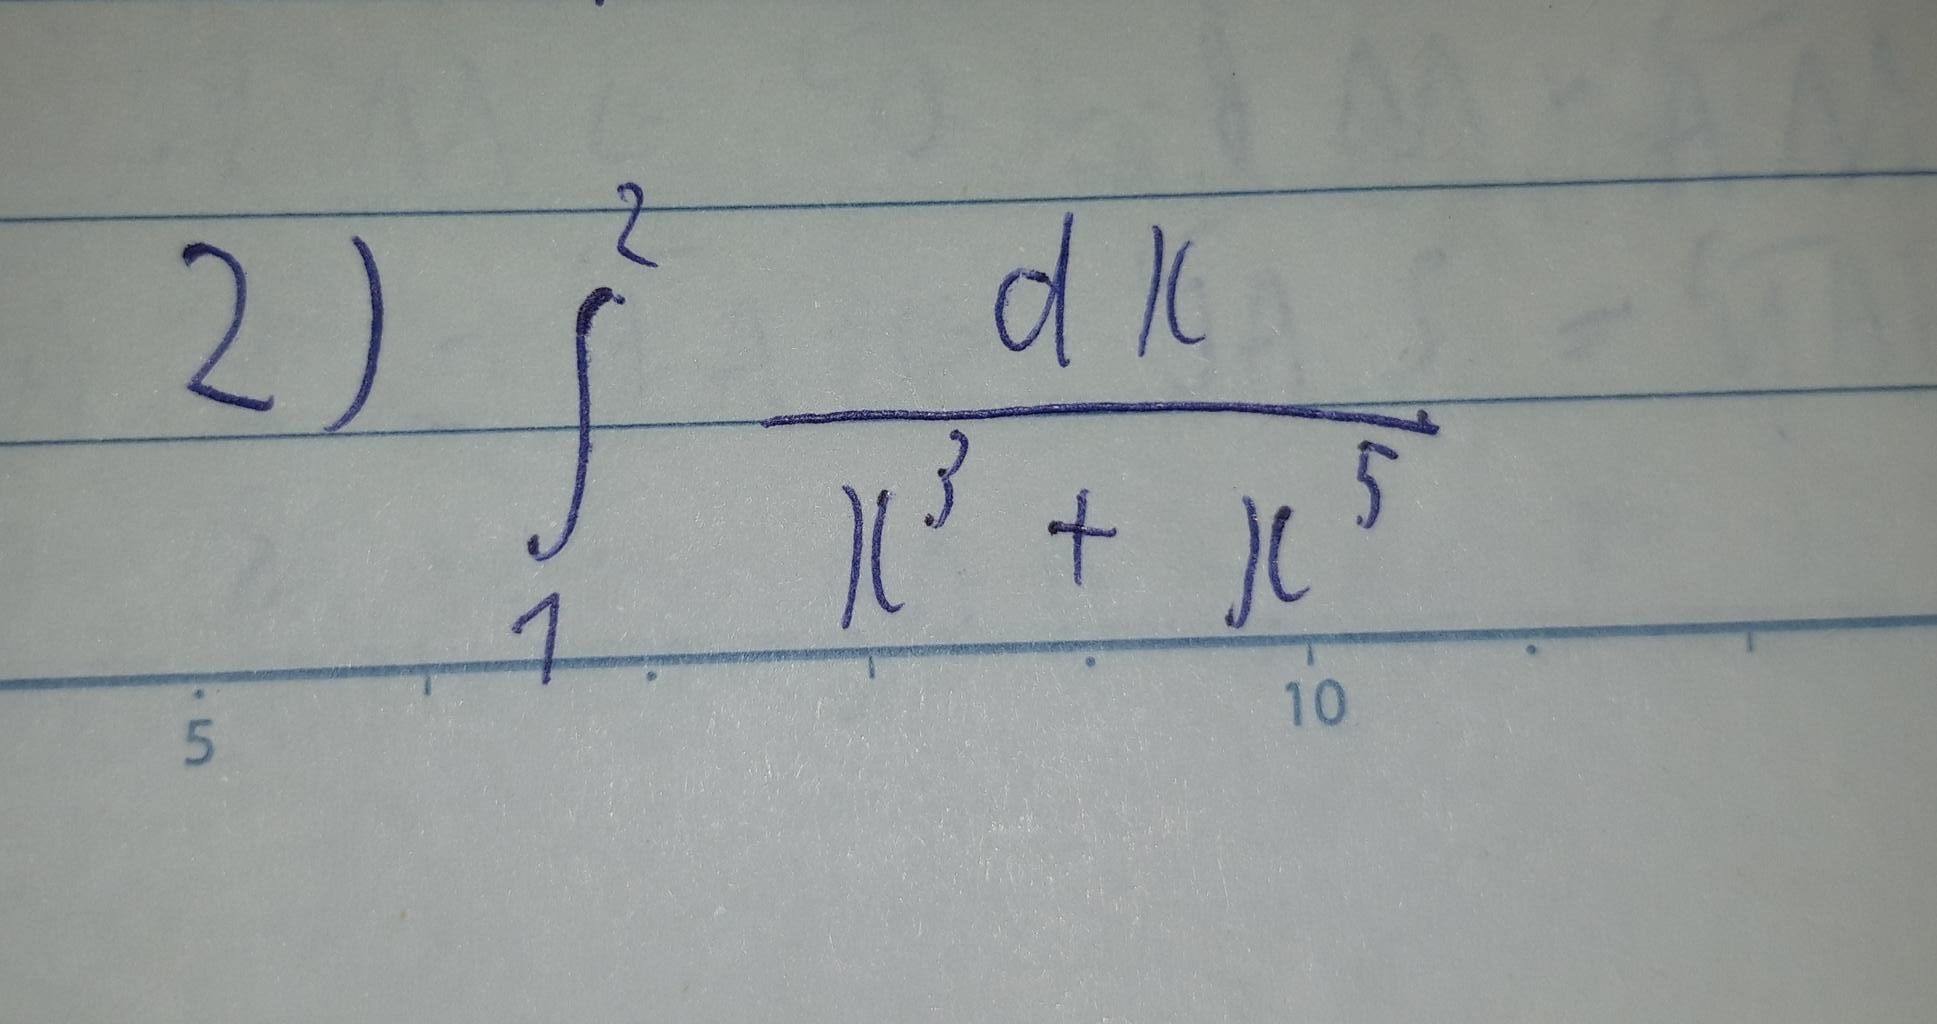 2) ∫₁² dx / (x³ + x⁵)
5 10